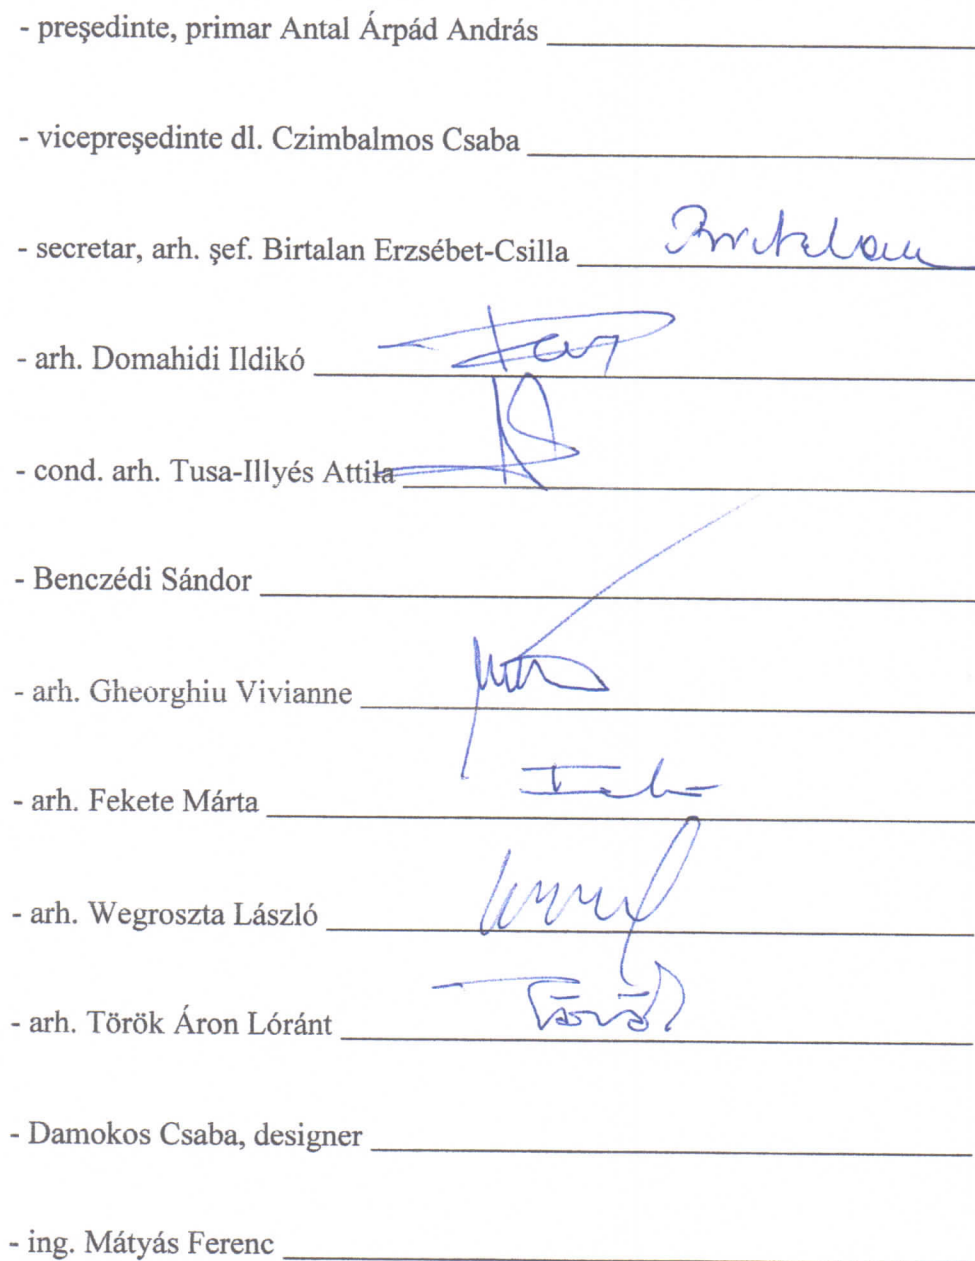 - preşedinte, primar Antal Árpád András
- vicepreşedinte dl. Czimbalmos Csaba
- secretar, arh. şef. Birtalan Erzsébet-Csilla
- arh. Domahidi Ildikó
- cond. arh. Tusa-Illyés Attila
- Benczédi Sándor
- arh. Gheorghiu Vivianne
- arh. Fekete Márta
- arh. Wegroszta László
- arh. Török Áron Lóránt
- Damokos Csaba, designer
- ing. Mátyás Ferenc